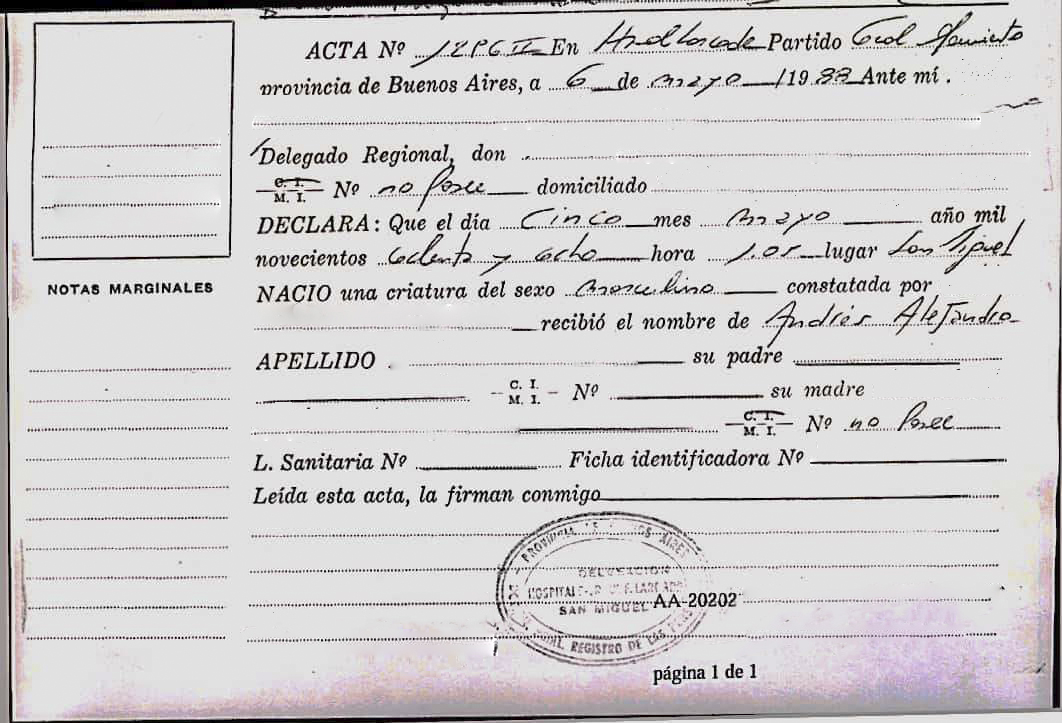 ACTA Nº En Partido Gral Sarmiento
provincia de Buenos Aires, a 6 de mayo 1988 Ante mí .
Delegado Regional, don
C. I. M. I. Nº no Posee domiciliado
DECLARA: Que el día Cinco mes mayo año mil
novecientos ochenta y ocho hora 1.05 lugar San Miguel
NACIO una criatura del sexo masculino constatada por
NOTAS MARGINALES
recibió el nombre de Andrés Alejandro
APELLIDO su padre
C. I. M. I. Nº su madre
C. I. M. I. Nº no Posee
L. Sanitaria Nº Ficha identificadora Nº
Leída esta acta, la firman conmigo
PROVINCIA AIRES
DELEGACION
HOSPITAL
SAN MIGUEL AA-20202
REGISTRO DE LAS
página 1 de 1